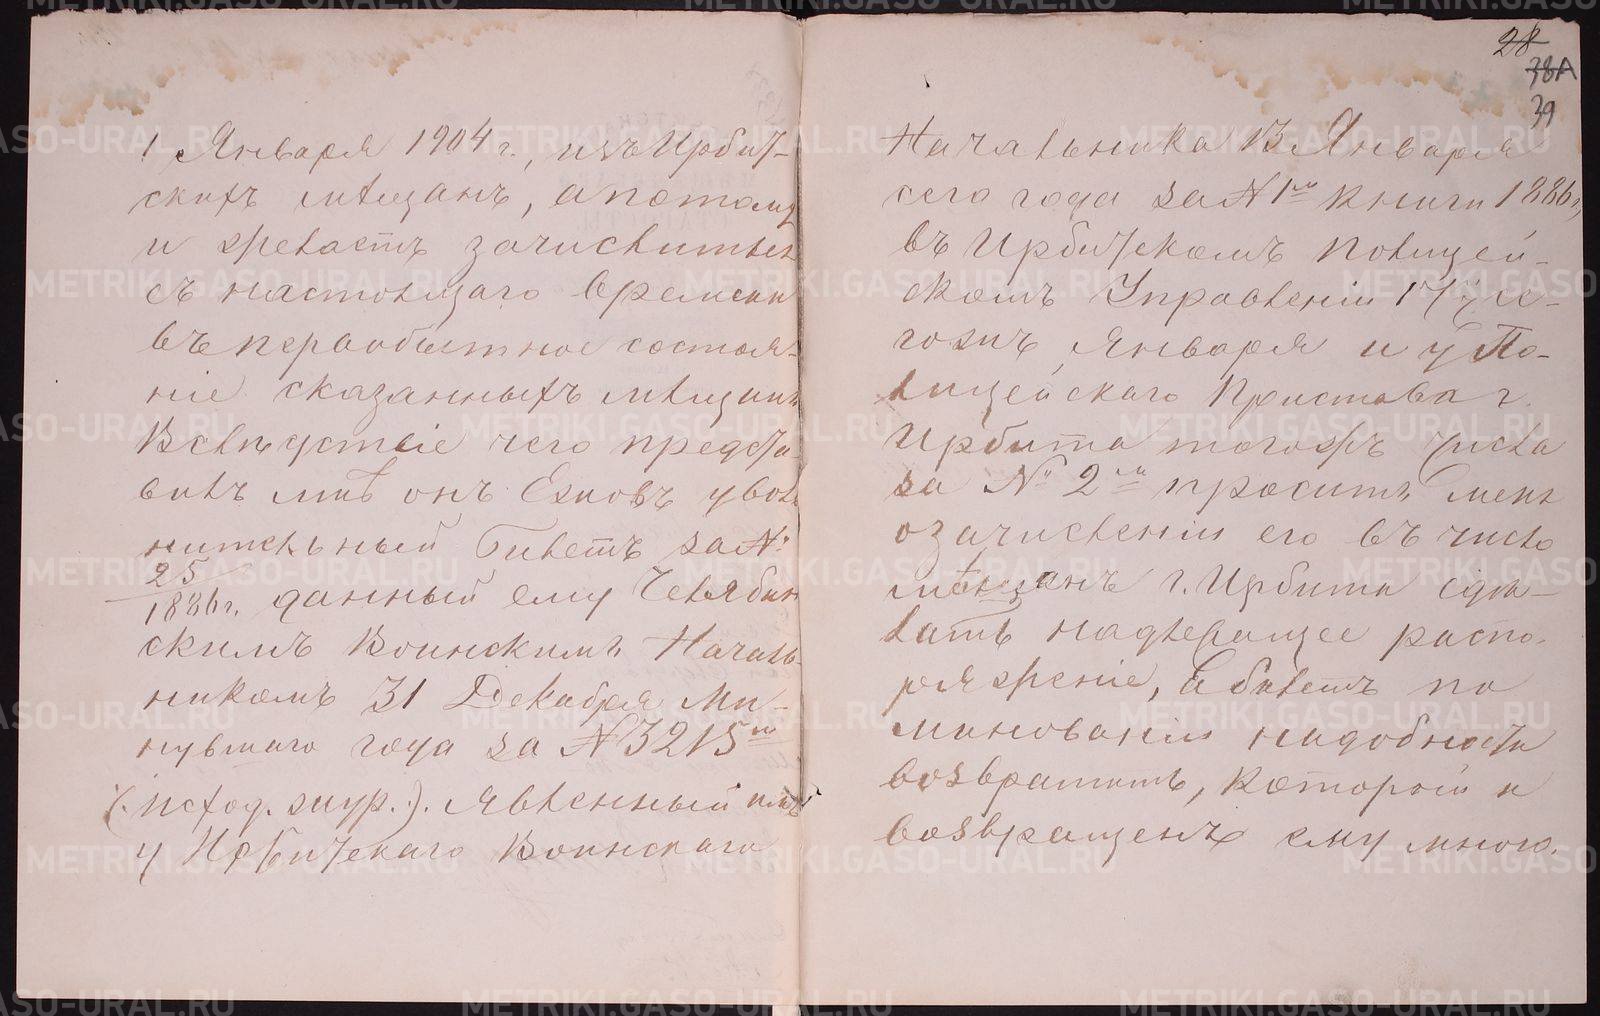 1 Января 1904 г., изъ Ирбит-
скихъ мѣщанъ, а потому
и желаетъ зачислиться
съ настоящаго времени
въ первобытное состоя-
ніе сказанныхъ мѣщанъ
Вслѣдствіе чего предста
вилъ мнѣ онъ увол
нительный билетъ за №
25/1886 г. данный ему Челябин
скимъ Воинскимъ Началь-
никомъ 31 Декабря Ми-
нувшаго года за № 3215м
(исход. жур.). явленный имъ
у Ирбитскаго Воинскаго
28
38А
39
Начальника 13 Января
сего года за № 1м книги 1886 г,
въ Ирбитскомъ Полицей-
скомъ Управленіи 17
гожъ Января и у По-
лицейскаго Пристава г.
Ирбита тогожъ числа
за № 2м проситъ меня
о зачисленіи его въ число
мѣщанъ г. Ирбита сдѣ-
лать надлежащее распо-
ряженіе, а билетъ по
минованіи надобности
возвратить, который и
возвращенъ ему мною.
METRIKI.GASO-URAL.RU